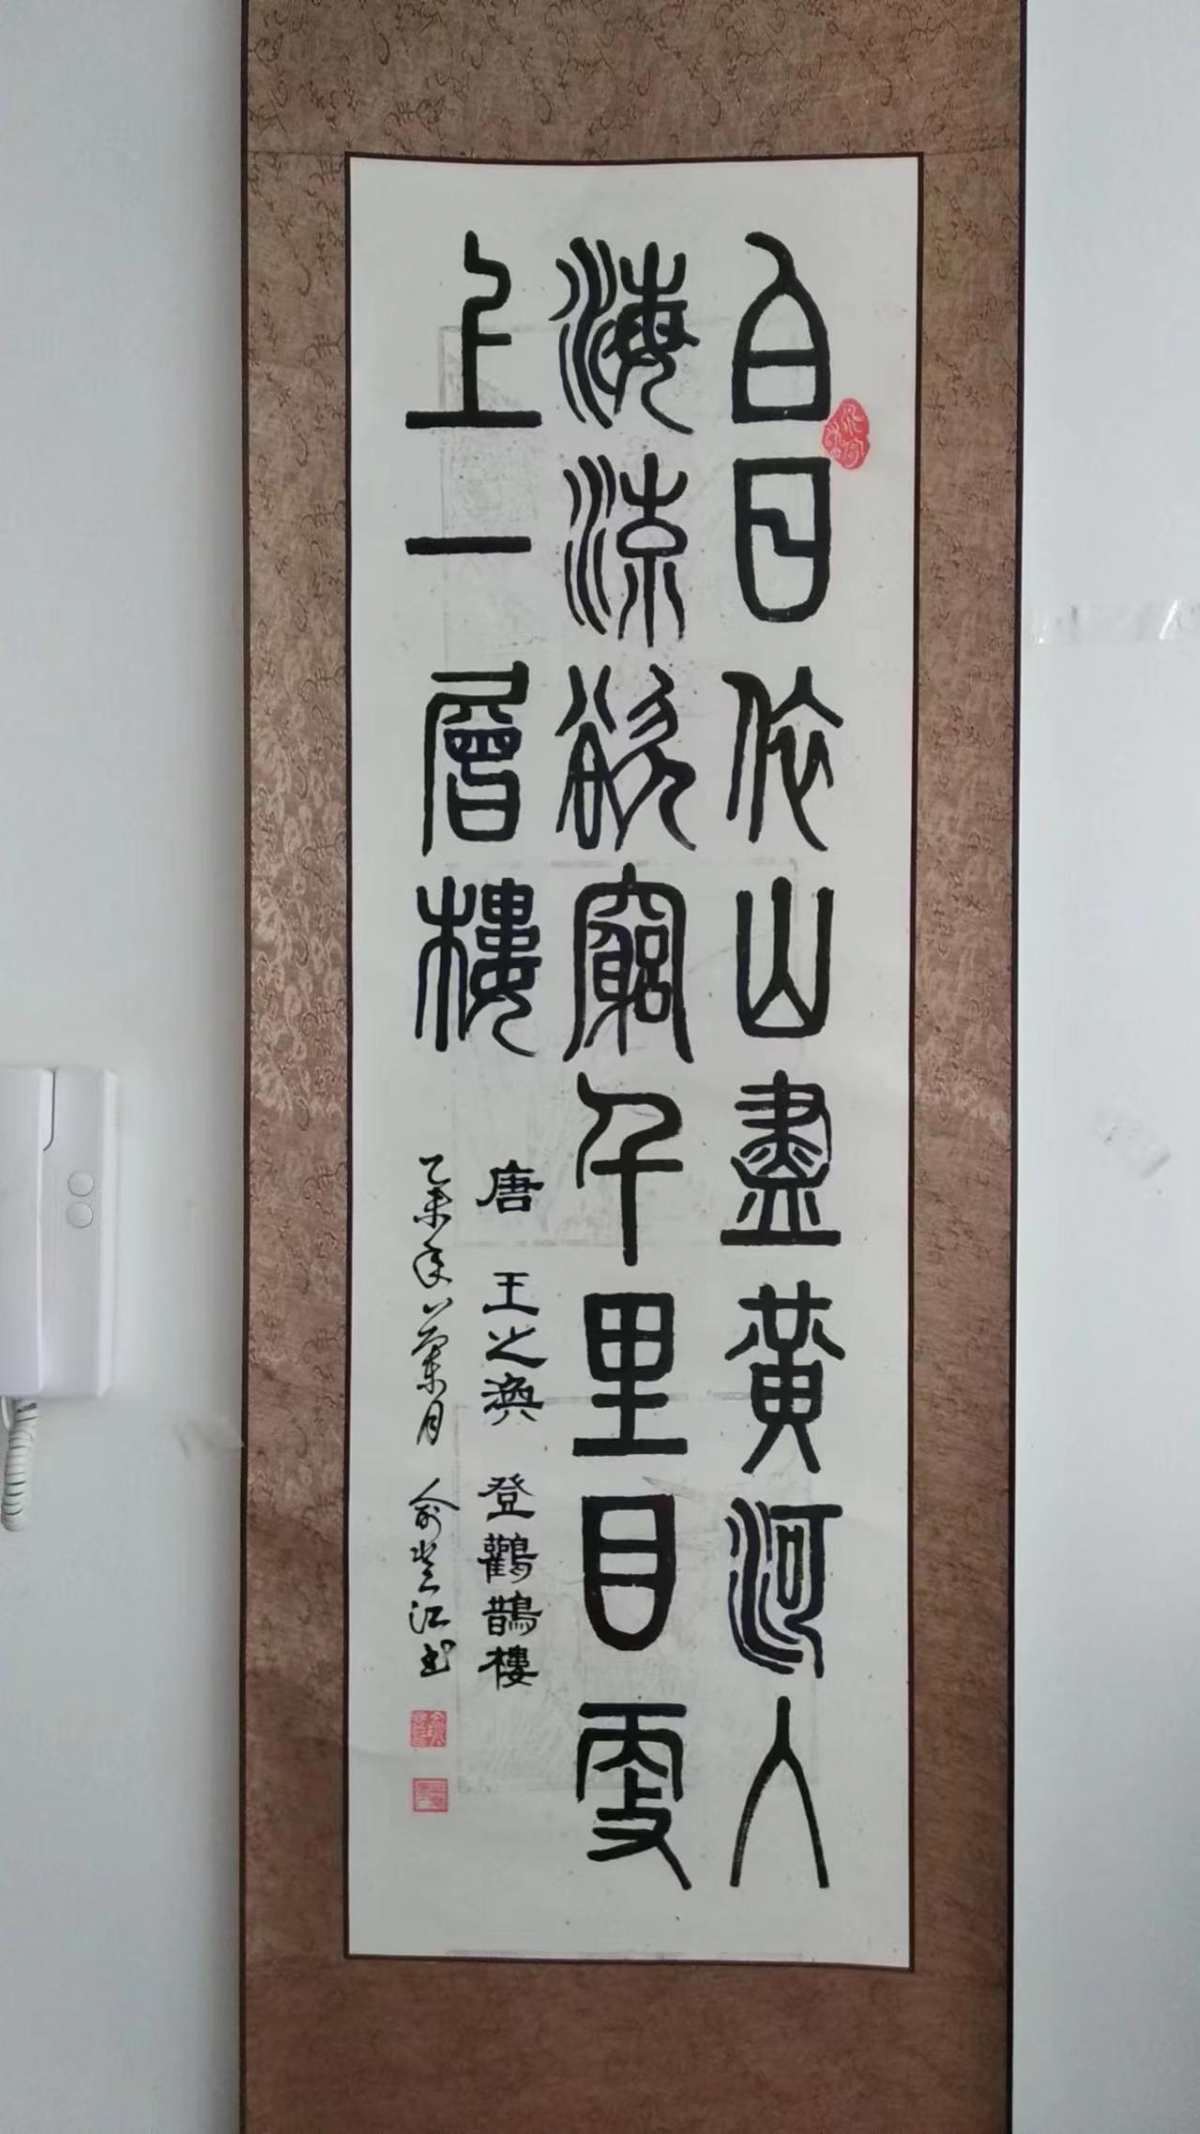 白日依山盡黃河入
海流欲窮千里目更
上一層樓
唐 王之渙 登鸛鵲樓
乙未年八蘭月 俞 江书